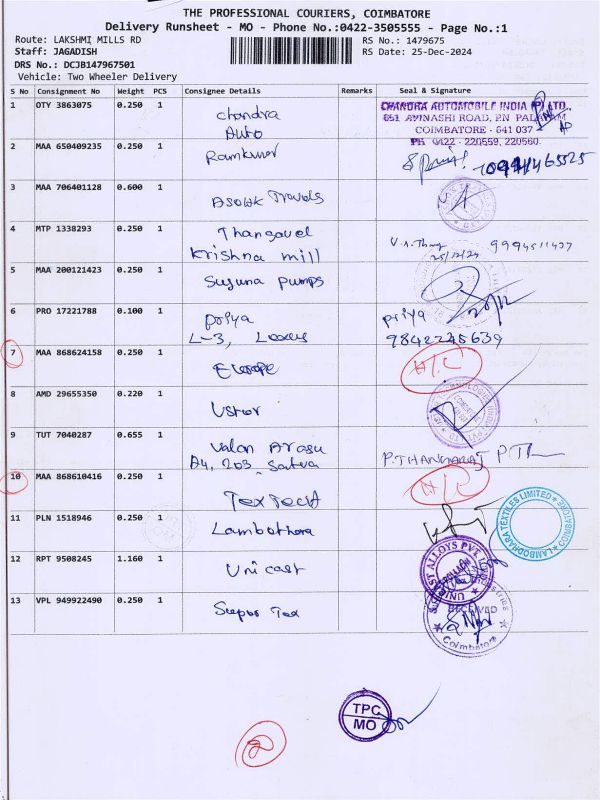 THE PROFESSIONAL COURIERS, COIMBATORE
Delivery Runsheet - MO - Phone No.:0422-3505555 - Page No.:1
Route: LAKSHMI MILLS RD
Staff: JAGADISH
DRS No.: DCJB147967501
Vehicle: Two Wheeler Delivery
RS No.: 1479675
RS Date: 25-Dec-2024
S No Consignment No Weight PCS Consignee Details Remarks Seal & Signature
1 OTY 3863075 0.250 1 Chandra
Auto
CHANDRA AUTOMOBILE INDIA (P) LTD.,
651 AVINASHI ROAD, P.N PALAYAM
COIMBATORE - 641 037
PH 0422 - 220559, 220560.
2 MAA 650409235 0.250 1 Ramkumar
3 MAA 706401128 0.600 1 Asowk Travels
4 MTP 1338293 0.250 1 Thangavel
Krishna mill
25/12/24
5 MAA 200121423 0.250 1 Suguna Pumps
6 PRO 17221788 0.100 1 priya
L-3, Lexus
priya
9842245639
7 MAA 868624158 0.250 1 Europe
8 AMD 29655350 0.220 1
9 TUT 7040287 0.655 1 Valan Arasu
A4, 203, Satva
P.THANGARAJ
10 MAA 868610416 0.250 1 Textech
11 PLN 1518946 0.250 1 Lambothara
LAMBODHARA TEXTILES LIMITED
COIMBATORE
12 RPT 9508245 1.160 1 Unicast
UNICAST ALLOYS PVT LTD
13 VPL 949922490 0.250 1 Super Tex
RECEIVED
Coimbatore
TPC
MO